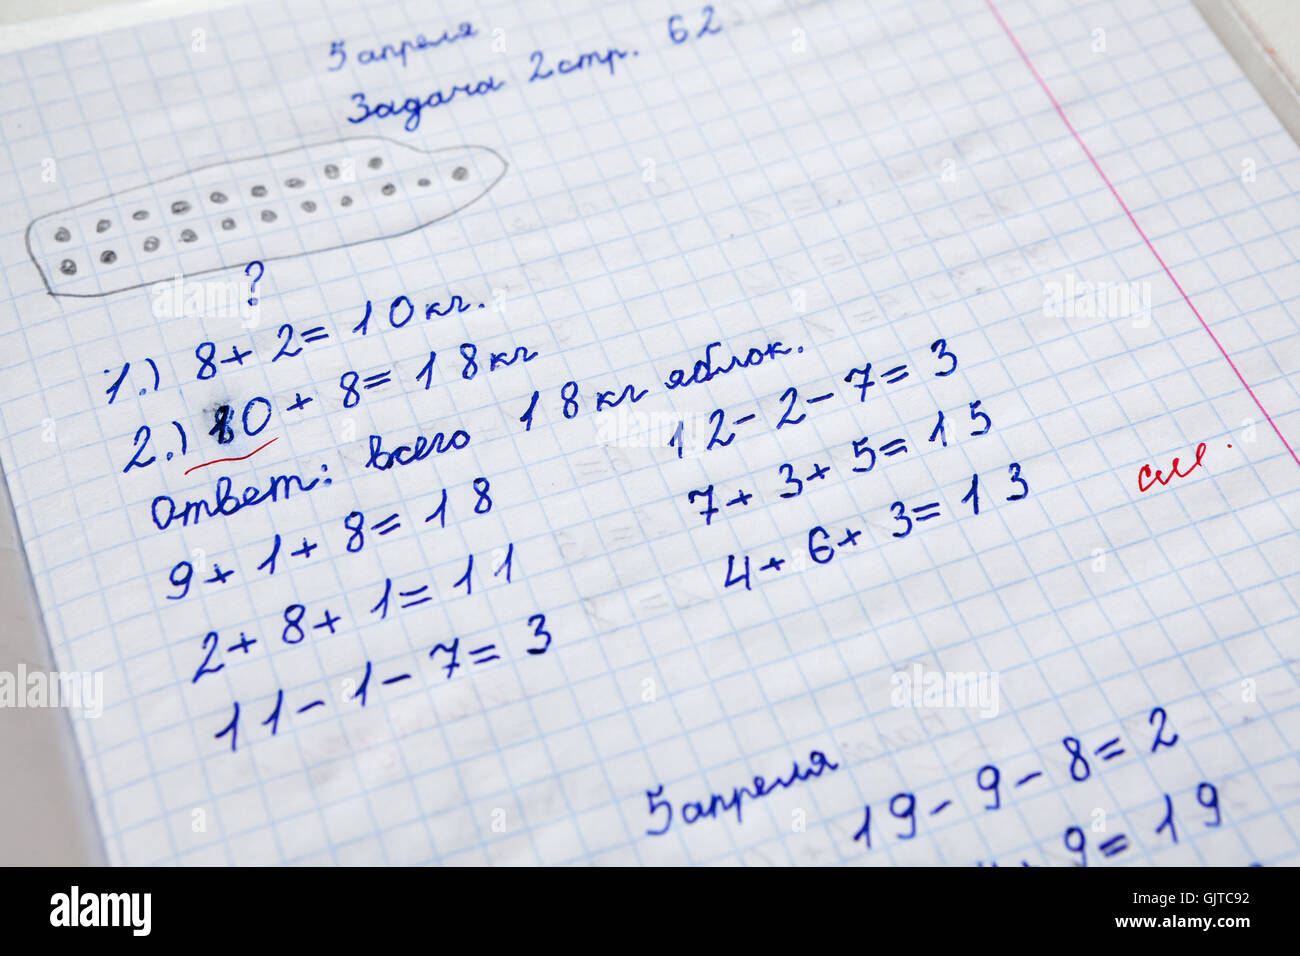 5 апреля
Задача 2 стр. 62
?
1.) 8+2=10кг.
2.) 10+8=18кг
Ответ: всего 18 кг яблок.
9+1+8=18
2+8+1=11
11-1-7=3
12-2-7=3
7+3+5=15
4+6+3=13
см.
5 апреля
19-9-8=2
9=19
alamy
alamy stock photo
GJTC92
www.alamy.com